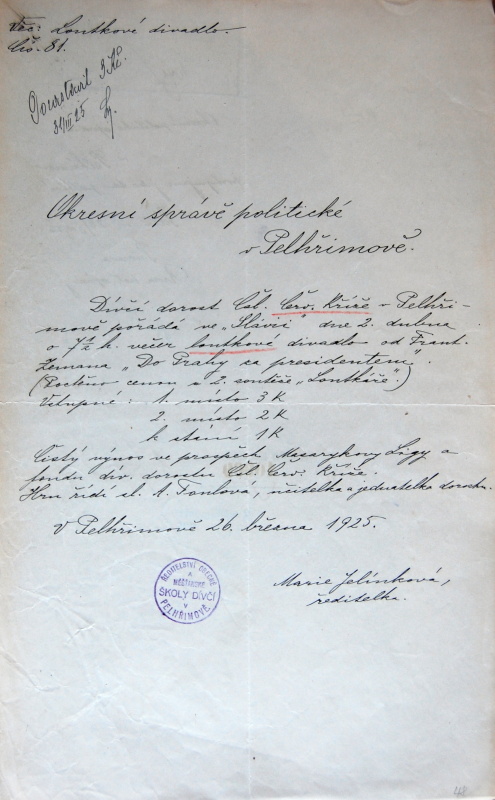 Věc: Loutkové divadlo.
Čís. 81.
3 Kč.
31/III 25
Okresní správě politické
v Pelhřimově.
Dívčí dorost Čsl. Červ. Kříže – Pelhři-
mově pořádá ve „Slávii" dne 2. dubna
o 7½ h. večer loutkové divadlo od Frant.
Zemana „Do Prahy za presidentem".
(Poctěno cenou z 2. soutěže „Loutkáře".)
Vstupné: 1. místo 3 K
2. místo 2 K
k stání 1 K
Čistý výnos ve prospěch Masarykovy Ligy a
fondu dív. dorostu Čsl. Červ. Kříže.
Hru řídí sl. A. učitelka a jednatelka dorostu.
V Pelhřimově 26. března 1925.
ŘEDITELSTVÍ OBECNÉ
A
MĚŠŤANSKÉ
ŠKOLY DÍVČÍ
V
PELHŘIMOVĚ
Marie Jelínková,
ředitelka.
48